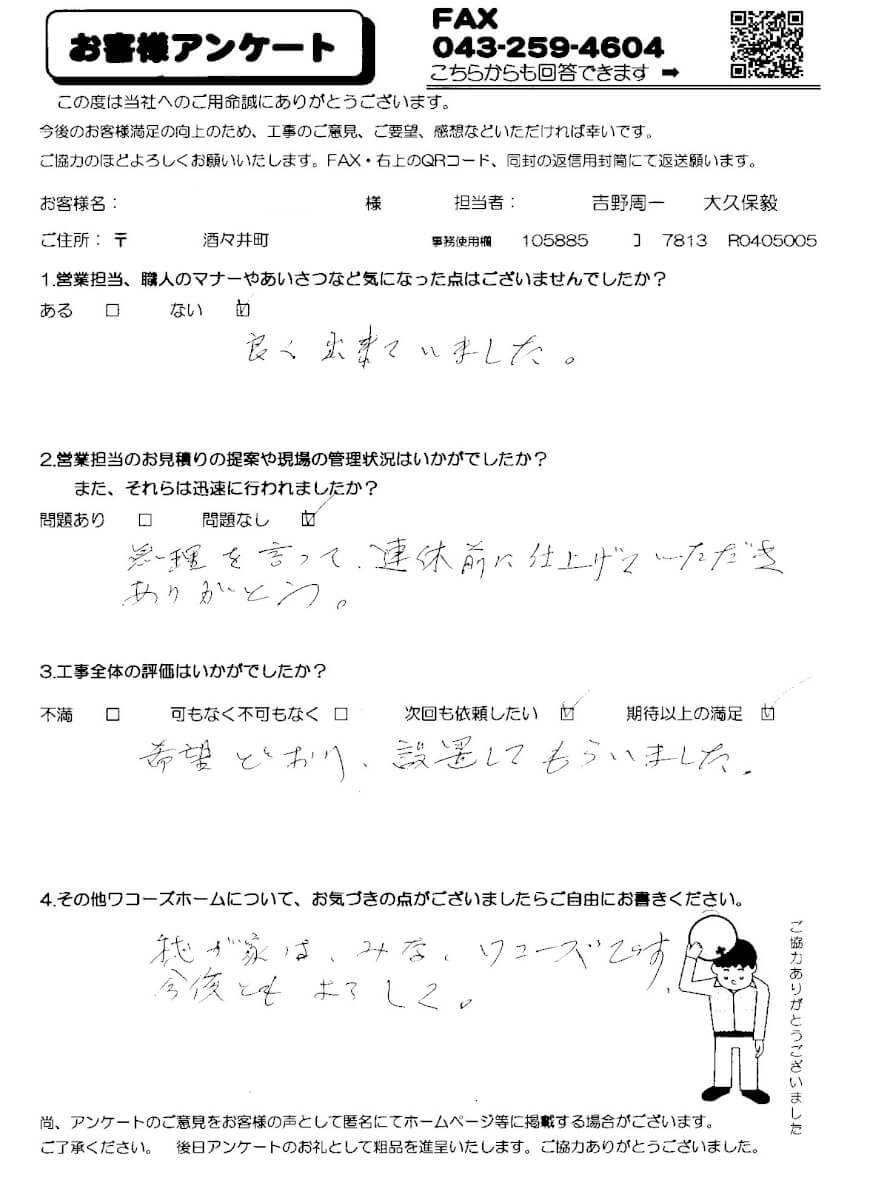 お客様アンケート
FAX
043-259-4604
こちらからも回答できます ➡
この度は当社へのご用命誠にありがとうございます。
今後のお客様満足の向上のため、工事のご意見、ご要望、感想などいただければ幸いです。
ご協力のほどよろしくお願いいたします。FAX・右上のQRコード、同封の返信用封筒にて返送願います。
お客様名： 様 担当者： 吉野周一 大久保毅
ご住所：〒 酒々井町 事務使用欄 105885 コ 7813 R0405005
1.営業担当、職人のマナーやあいさつなど気になった点はございませんでしたか？
ある □ ない ☑
良く出来ていました。
2.営業担当のお見積りの提案や現場の管理状況はいかがでしたか？
また、それらは迅速に行われましたか？
問題あり □ 問題なし ☑
無理を言って、連休前に仕上げていただき
ありがとう。
3.工事全体の評価はいかがでしたか？
不満 □ 可もなく不可もなく □ 次回も依頼したい ☑ 期待以上の満足 ☑
希望どおり、設置してもらいました。
4.その他ワコーズホームについて、お気づきの点がございましたらご自由にお書きください。
我が家は、みな、ワコーズです、
今後ともよろしく。
ご協力ありがとうございました
尚、アンケートのご意見をお客様の声として匿名にてホームページ等に掲載する場合がございます。
ご了承ください。 後日アンケートのお礼として粗品を進呈いたします。ご協力ありがとうございました。